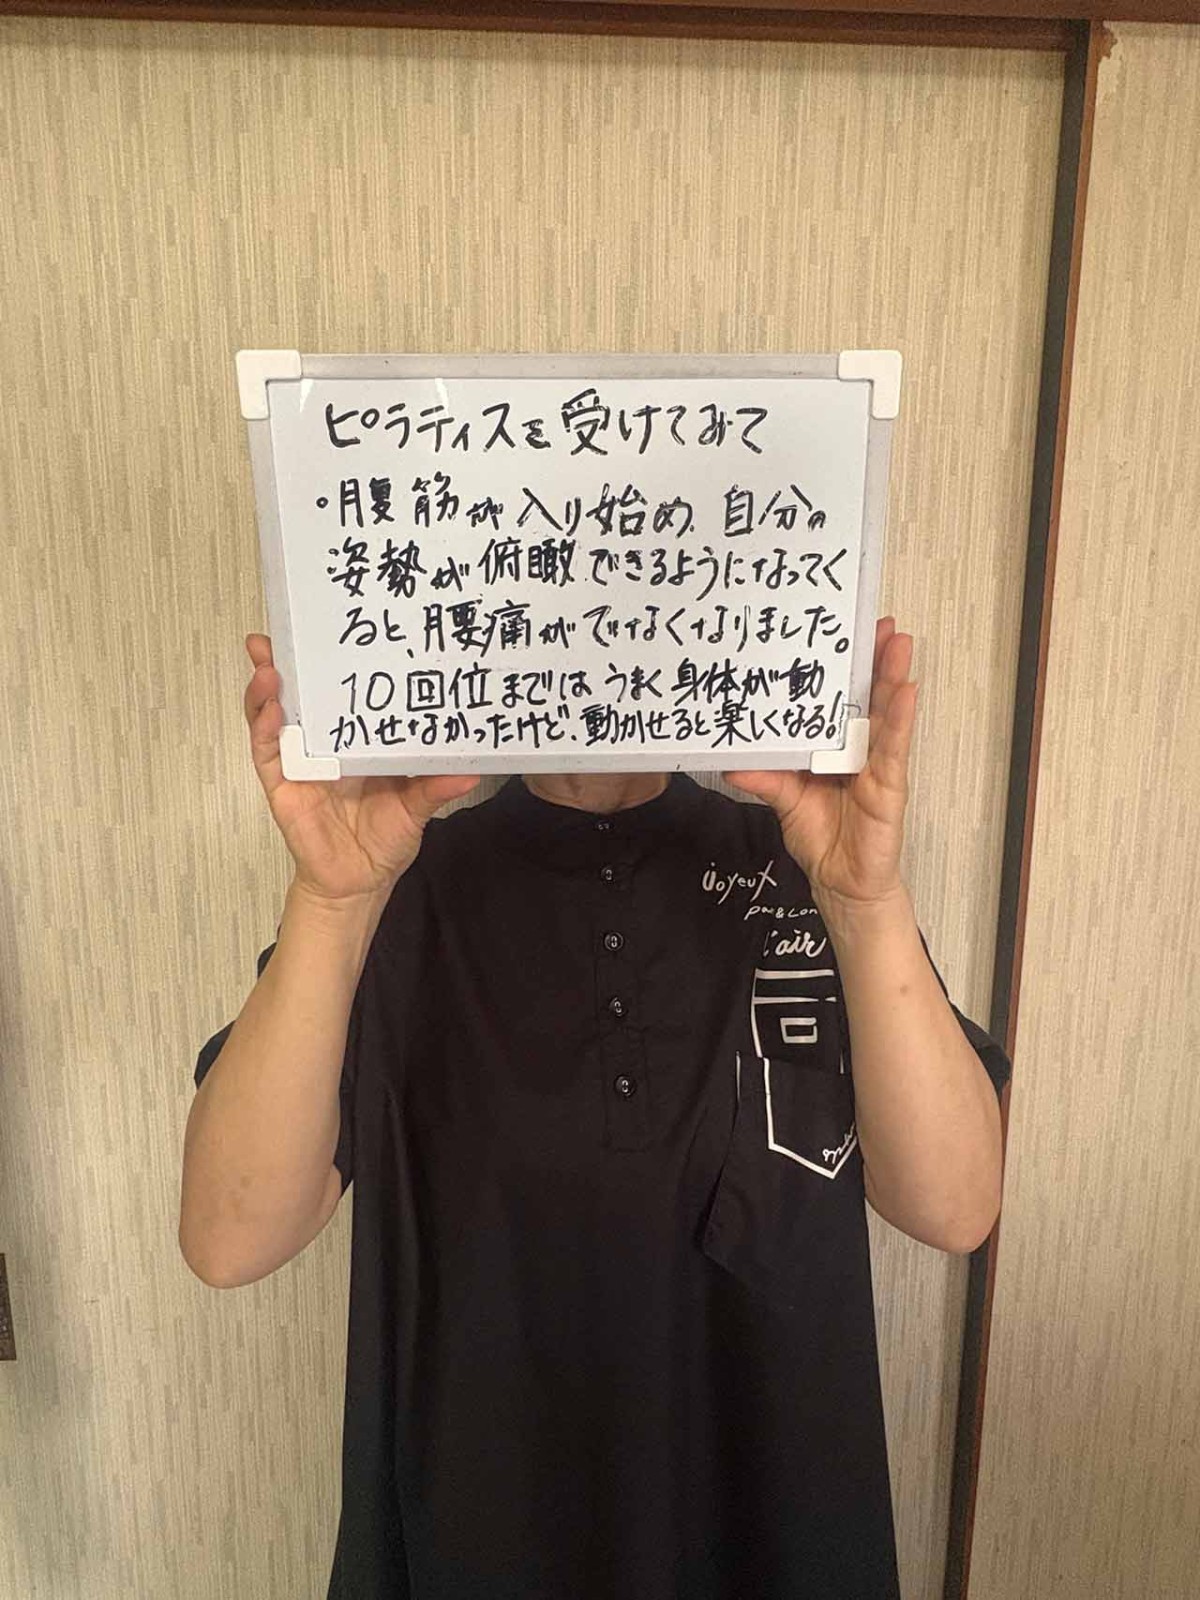 ピラティスを受けてみて
・腹筋が入り始め、自分の
姿勢が俯瞰できるようになってく
ると、腰痛がでなくなりました。
10回位まではうまく身体が動
かせなかったけど、動かせると楽しくなる!
Joyeux
l'air